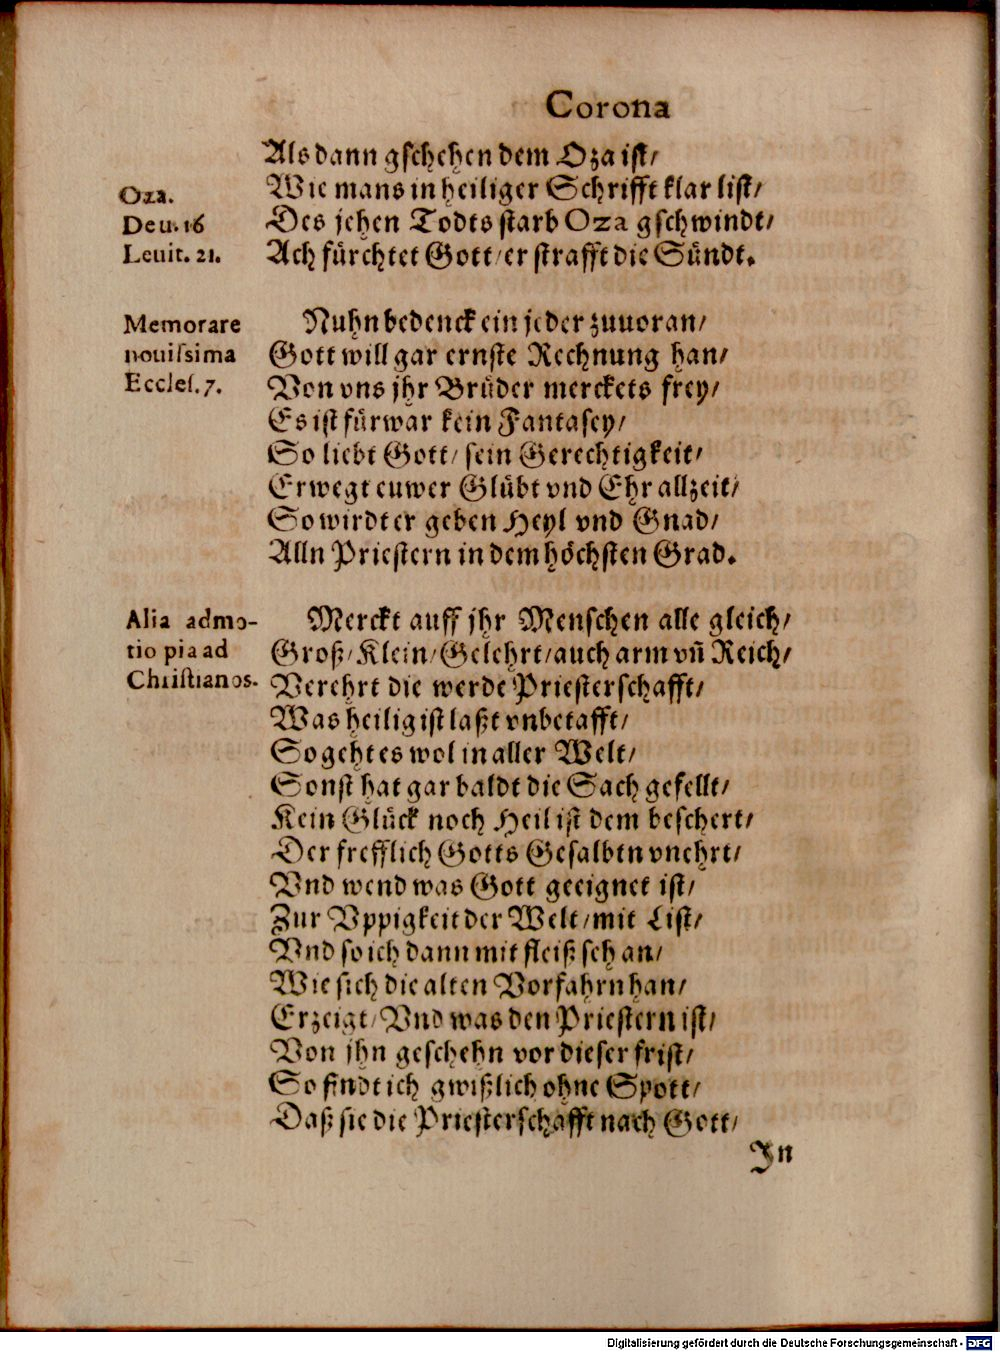 Corona
Als dann gschehen dem Oza ist/
Wie mans in heiliger Schrifft klar list/
Des jehen Todts starb Oza gschwindt/
Ach fürchtet Gott/ er strafft die Sündt.
Oza.
Deu. 16
Leuit. 21.
Nuhn bedenck ein jeder zuuoran/
Gott will gar ernste Rechnung han/
Von vns jhr Brüder merckets frey/
Es ist fürwar kein Fantasey/
So liebt Gott/ sein Gerechtigkeit/
Erwegt euwer Glübt vnd Ehr allzeit/
So wirdt er geben Heyl vnd Gnad/
Alln Priestern in dem höchsten Grad.
Memorare
nouissima
Eccles. 7.
Merckt auff jhr Menschen alle gleich/
Groß/ Klein/ Gelehrt/ auch arm vñ Reich/
Verehrt die werde Priesterschafft/
Was heilig ist laßt vnbetafft/
So geht es wol in aller Welt/
Sonst hat gar baldt die Sach gefellt/
Kein Glück noch Heil ist dem beschert/
Der frefflich Gotts Gesalbtn vnehrt/
Vnd wend was Gott geeignet ist/
Zur Vppigkeit der Welt/ mit List/
Vnd so ich dann mit fleiß seh an/
Wie sich die alten Vorfahrn han/
Erzeigt/ Vnd was den Priestern ist/
Von jhn geschehn vor dieser frist/
So findt ich gwißlich ohne Spott/
Daß sie die Priesterschafft nach Gott/
Alia admo-
tio pia ad
Christianos.
In
Digitalisierung gefördert durch die Deutsche Forschungsgemeinschaft - DFG